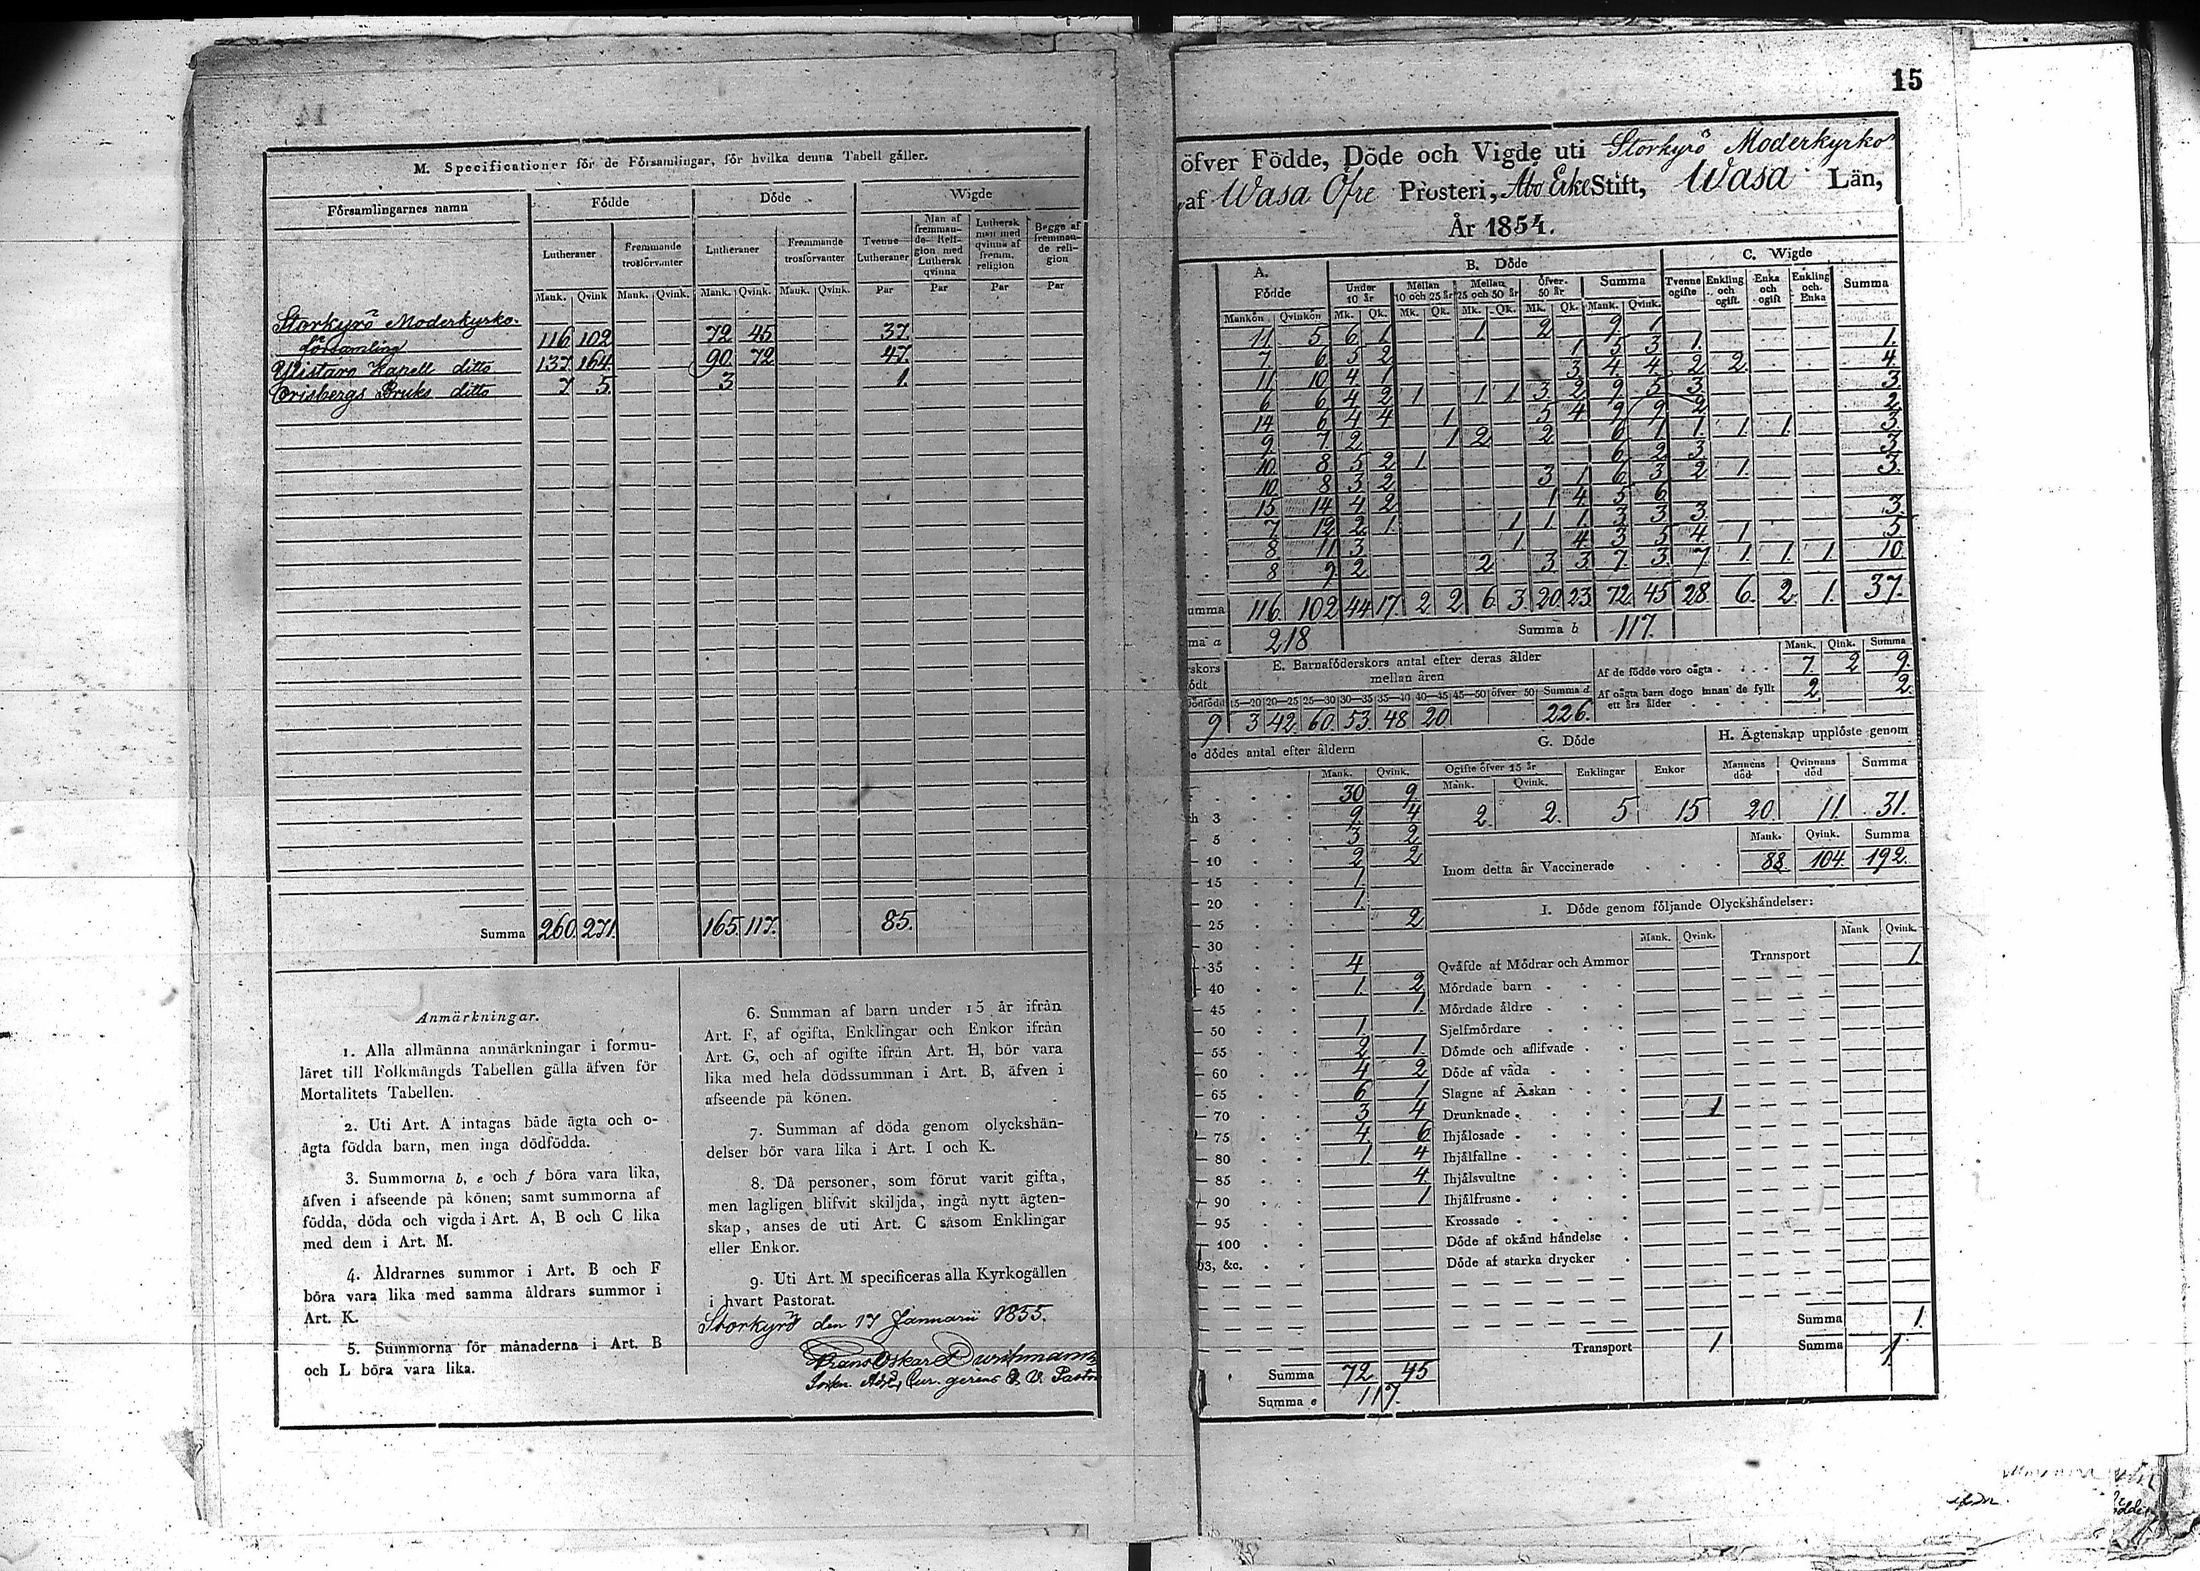 M. Specificationer för de Församlingar, för hvilka denna Tabell gäller.
Församlingarnes namn Födde Döde Wigde
Lutheraner Fremmande trosförvanter Lutheraner Fremmande trosförvanter Tvenne Lutheraner Man af fremmande Religion med Luthersk qvinna Luthersk man med qvinna af fremm. religion Begge af fremmande religion
Mank. Qvink Mank. Qvink. Mank. Qvink. Mank. Qvink. Par Par Par Par
Storkyrö Moderkyrko-
församling 116 102 72 45 37.
Ylistaro Kapell ditto 137 164 90 72 47.
Orisbergs Bruks ditto 7 5. 3 1.
Summa 260. 271. 165. 117. 85.
Anmärkningar.
1. Alla allmänna anmärkningar i formu-
läret till Folkmängds Tabellen gälla äfven för
Mortalitets Tabellen.
2. Uti Art. A intagas både ägta och o-
ägta födda barn, men inga dödfödda.
3. Summorna b, e och f böra vara lika,
äfven i afseende på könen; samt summorna af
födda, döda och vigda i Art. A, B och C lika
med dem i Art. M.
4. Åldrarnes summor i Art. B och F
böra vara lika med samma åldrars summor i
Art. K.
5. Summorna för månaderna i Art. B
och L böra vara lika.
6. Summan af barn under 15 år ifrån
Art. F, af ogifta, Enklingar och Enkor ifrån
Art. G, och af ogifte ifrån Art. H, bör vara
lika med hela dödssumman i Art. B, äfven i
afseende på könen.
7. Summan af döda genom olyckshän-
delser bör vara lika i Art. I och K.
8. Då personer, som förut varit gifta,
men lagligen blifvit skiljda, ingå nytt ägten-
skap, anses de uti Art. C såsom Enklingar
eller Enkor.
9. Uti Art. M specificeras alla Kyrkogällen
i hvart Pastorat.
Storkyrö den 17 Januarii 1855.
Frans Oskar Durchman
15
öfver Födde, Döde och Vigde uti Storkyrö Moderkyrko
af Wasa Öfre Prosteri, Åbo Erke Stift, Wasa Län,
År 1854.
A. Födde B. Döde C. Wigde
Under 10 år Mellan 10 och 25 år Mellan 25 och 50 år Öfver 50 år Summa Tvenne ogifte Enkling och ogift. Enka och ogift Enkling och Enka Summa
Mankön Qvinkön Mk. Qk. Mk. Qk. Mk. Qk. Mk. Qk. Mank. Qvink.
11 5 6 1 1 2 9 1
7 6 5 2 1 5 3 1. 1.
11 10 4 1 3 4 4 2 2 4.
6 6 4 2 1 1 1 3 2 9 5 3 3
14 6 4 4 1 5 4 9 9 2 2.
9 7 2 1 2 2 6 1 1 1 1 3
10 8 5 2 1 6 2 3 3
10 8 3 2 3 1 6 3 2 1. 3.
15 14 4 2 1 4 5 6
7 12 2 1 1 1 1 3 3 3 3.
8 11 3 1 4 3 5 4 1 5
8 9 2 2 3 3 7 3 7 1 1 1 10
umma 116. 102 44 17 2 2 6 3 20 23 72 45 28 6. 2 1. 37.
ma a 218 Summa b 117.
E. Barnaföderskors antal efter deras ålder
mellan åren
15—20 20—25 25—30 30—35 35—40 40—45 45—50 öfver 50 Summa d
9 3 42 60. 53. 48 20 226.
Mank. Qink. Summa
Af de födde voro oägta . . . . 7. 2 9.
Af oägta barn dogo innan de fyllt
ett års ålder . . . . 2 2.
e dödes antal efter åldern
Mank. Qvink.
30 9
h 3 9 4
5 3 2
10 2 2
15 1
20 1
25 2
30
35 4
40 1 2
45 1.
50 1
55 2 1
60 4 2
65 6 1
70 3 4
75 4 6
80 1 4
85 4
90 1
95
100
03, &c.
Summa 72 45
Summa e 117.
G. Döde
Ogifte öfver 15 år Enklingar Enkor
Mank. Qvink.
2. 2. 5 15
H. Ägtenskap upplöste genom
Mannens död Qvinnans död Summa
20 11. 31.
Mank. Qvink. Summa
Inom detta år Vaccinerade . . . 88 104. 192.
I. Döde genom följande Olyckshändelser:
Mank. Qvink. Mank Qvink.
Qväfde af Mödrar och Ammor Transport 1.
Mördade barn
Mördade äldre
Sjelfmördare
Dömde och aflifvade
Döde af våda
Slagne af Åskan
Drunknade . 1
Ihjälosade
Ihjälfallne
Ihjälsvultne
Ihjälfrusne
Krossade
Döde af okänd händelse
Döde af starka drycker
Summa 1.
Transport 1 Summa 1